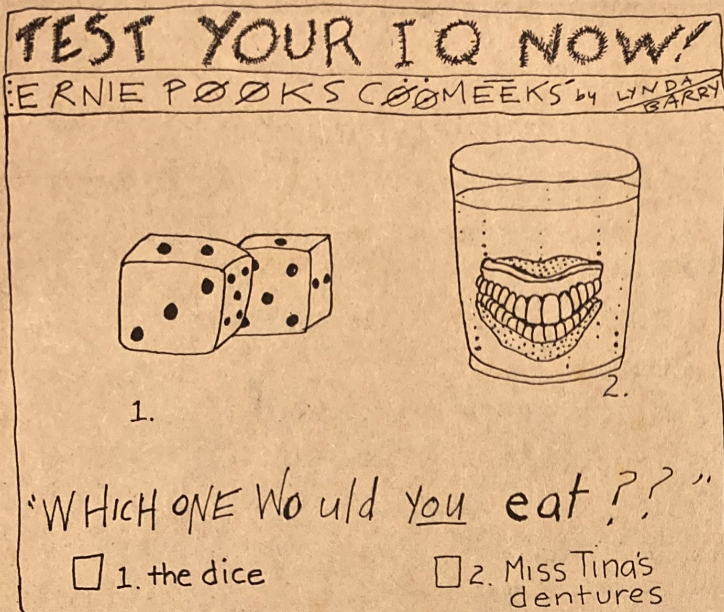 TEST YOUR IQ NOW!
ERNIE PØØKS CØ̈Ø̈MĒĒKS by LYNDA BARRY
1.
2.
"WHICH ONE WOuld you eat??"
1. the dice
2. Miss Tina's
dentures